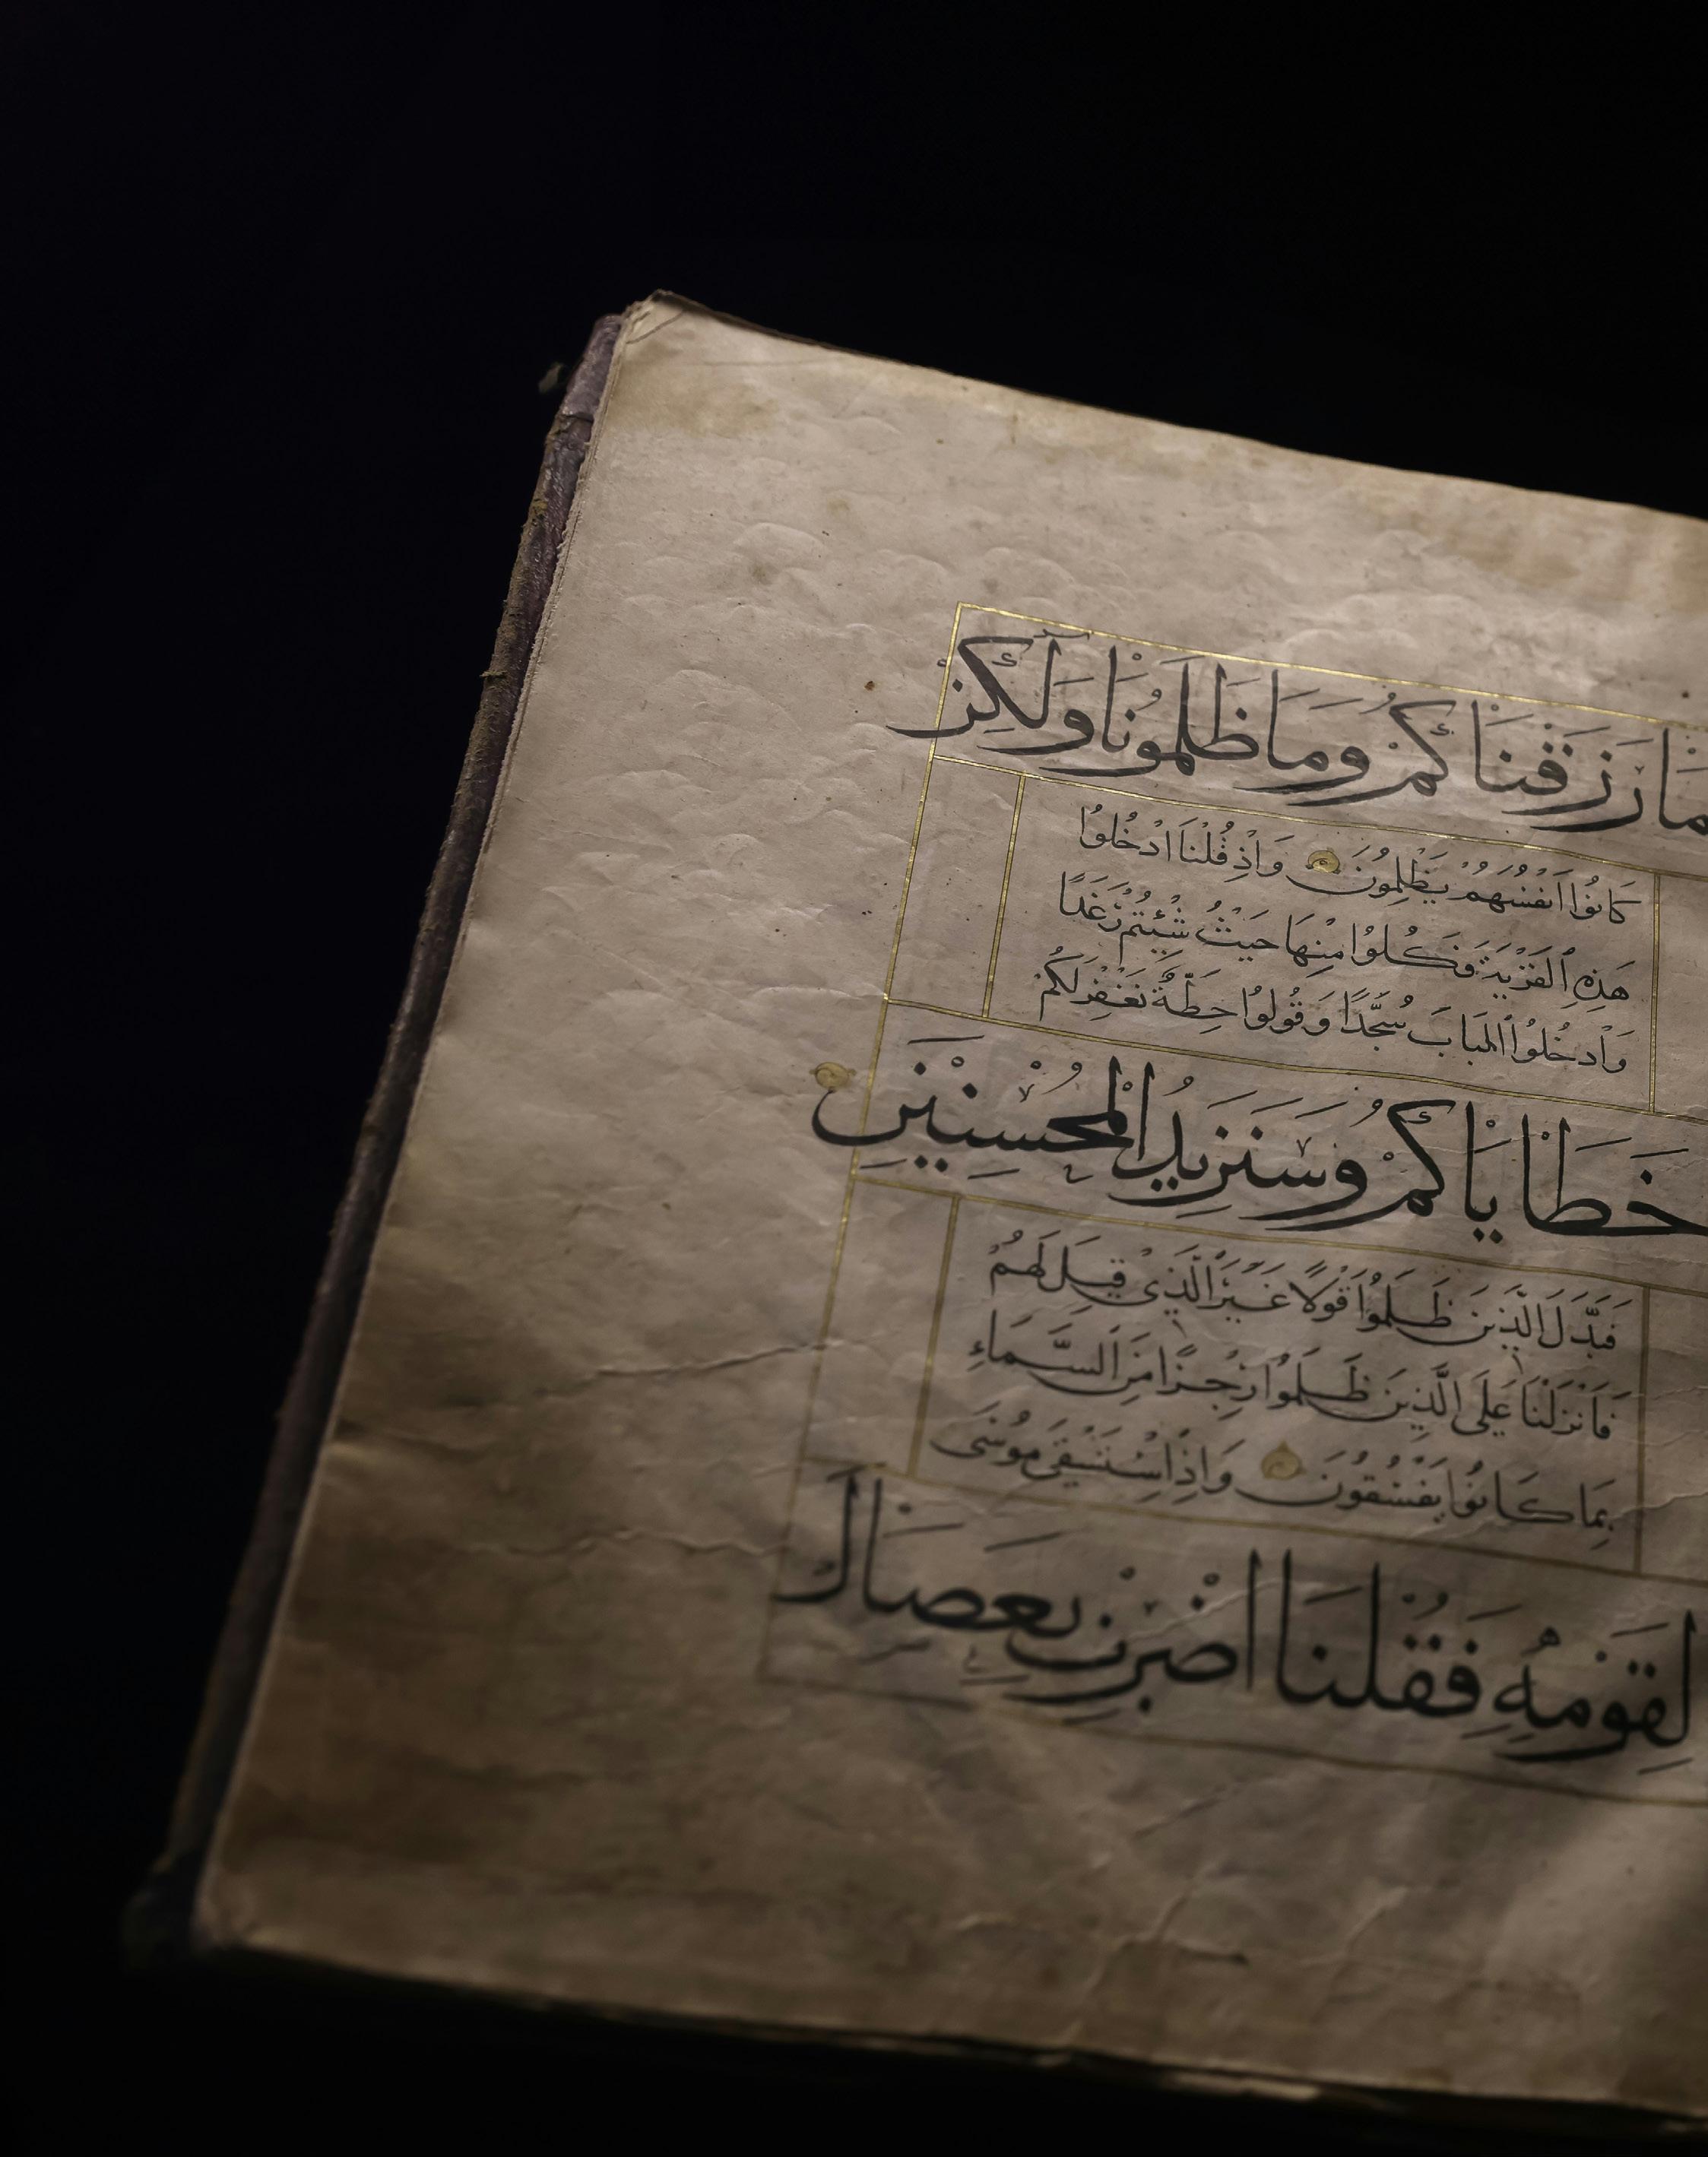 مَا رَزَقْنَاكُمْ وَمَا ظَلَمُونَا وَلَكِنْ
كَانُوا أَنْفُسَهُمْ يَظْلِمُونَ وَإِذْ قُلْنَا ادْخُلُوا
هَذِهِ الْقَرْيَةَ فَكُلُوا مِنْهَا حَيْثُ شِئْتُمْ رَغَدًا
وَادْخُلُوا الْبَابَ سُجَّدًا وَقُولُوا حِطَّةٌ نَغْفِرْ لَكُمْ
خَطَايَاكُمْ وَسَنَزِيدُ الْمُحْسِنِينَ
فَبَدَّلَ الَّذِينَ ظَلَمُوا قَوْلًا غَيْرَ الَّذِي قِيلَ لَهُمْ
فَأَنْزَلْنَا عَلَى الَّذِينَ ظَلَمُوا رِجْزًا مِنَ السَّمَاءِ
بِمَا كَانُوا يَفْسُقُونَ وَإِذِ اسْتَسْقَى مُوسَى
لِقَوْمِهِ فَقُلْنَا اضْرِبْ بِعَصَاكَ